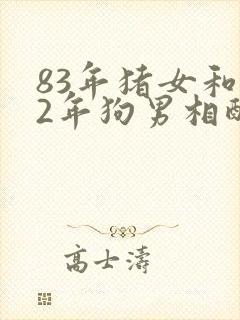 83年猪女和
2年狗男相配
高士涛